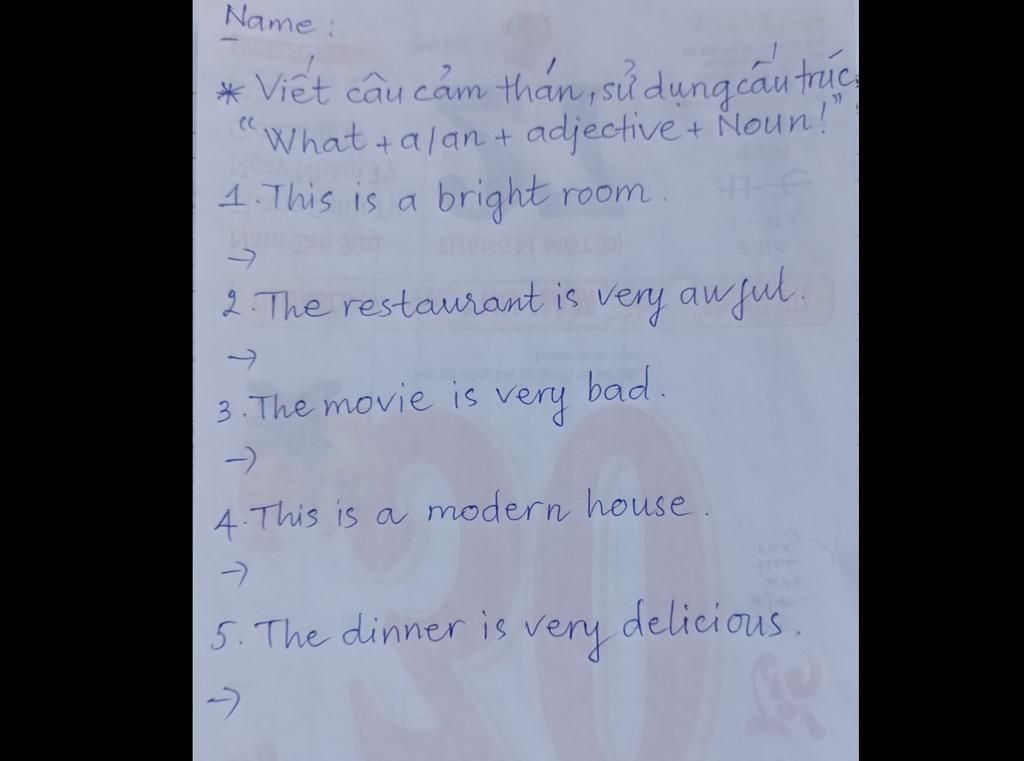 Name :
* Viết câu cảm thán, sử dụng cấu trúc:
"What + a/an + adjective + Noun!"
1. This is a bright room.
→
2. The restaurant is very awful.
→
3. The movie is very bad.
→
4. This is a modern house.
→
5. The dinner is very delicious.
→